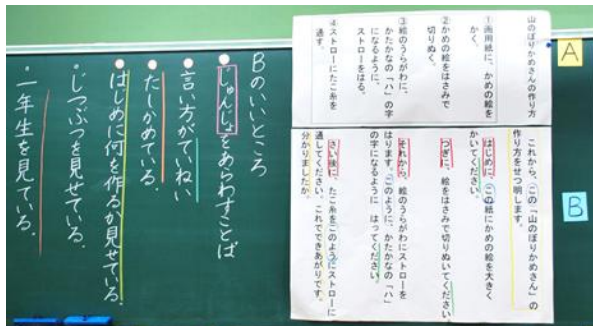 A
山のぼりかめさんの作り方
①画用紙に、かめの絵を
かく。
②かめの絵をはさみで
切りぬく。
③絵のうらがわに、
かたかなの「ハ」の字
になるように、
ストローをはる。
④ストローにたこ糸を
通す。
B
これから、この「山のぼりかめさん」の
作り方をせつ明します。
はじめに、この紙にかめの絵を大きく
かいてください。
つぎに、絵をはさみで切りぬいてください。
それから、絵のうらがわにストローを
はります。このように、かたかなの「ハ」
の字になるように はってください。
さい後に、たこ糸をこのようにストローに
通してください。これでできあがりです。
分かりましたか。
Bのいいところ
じゅんじょをあらわすことば
言い方がていねい
たしかめている。
はじめに何を作るか見せている。
・じつぶつを見せている。
・一年生を見ている。